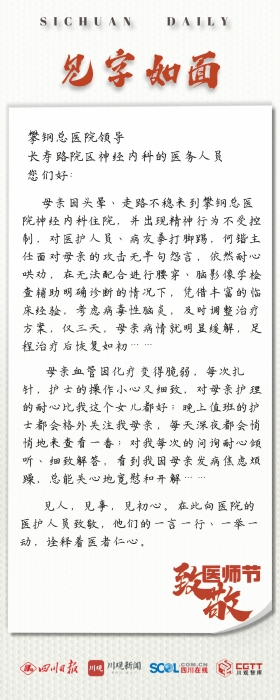 SICHUAN DAILY
见字如面
攀钢总医院领导
长寿路院区神经内科的医务人员
您们好：
母亲因头晕、走路不稳来到攀钢总医
院神经内科住院，并出现精神行为不受控
制，对医护人员、病友拳打脚踢，何锴主
任面对母亲的攻击无半句怨言，依然耐心
哄劝，在无法配合进行腰穿、脑影像学检
查辅助明确诊断的情况下，凭借丰富的临
床经验，考虑病毒性脑炎，及时调整治疗
方案，仅三天，母亲病情就明显缓解，足
程治疗后恢复如初……
母亲血管因化疗变得脆弱，每次扎
针，护士的操作小心又细致，对母亲护理
的耐心比我这个女儿都好；晚上值班的护
士都会格外关注我母亲，每天深夜都会悄
悄地来查看一番；对我每次的问询耐心倾
听、细致解答，看到我因母亲发病焦虑烦
躁，总能关心地宽慰和开解……
见人，见事，见初心。在此向医院的
医护人员致敬，他们的一言一行、一举一
动，诠释着医者仁心。
致敬医师节
四川日报
川观新闻
SCOL.COM.CN
四川在线
CGTT
川观智库